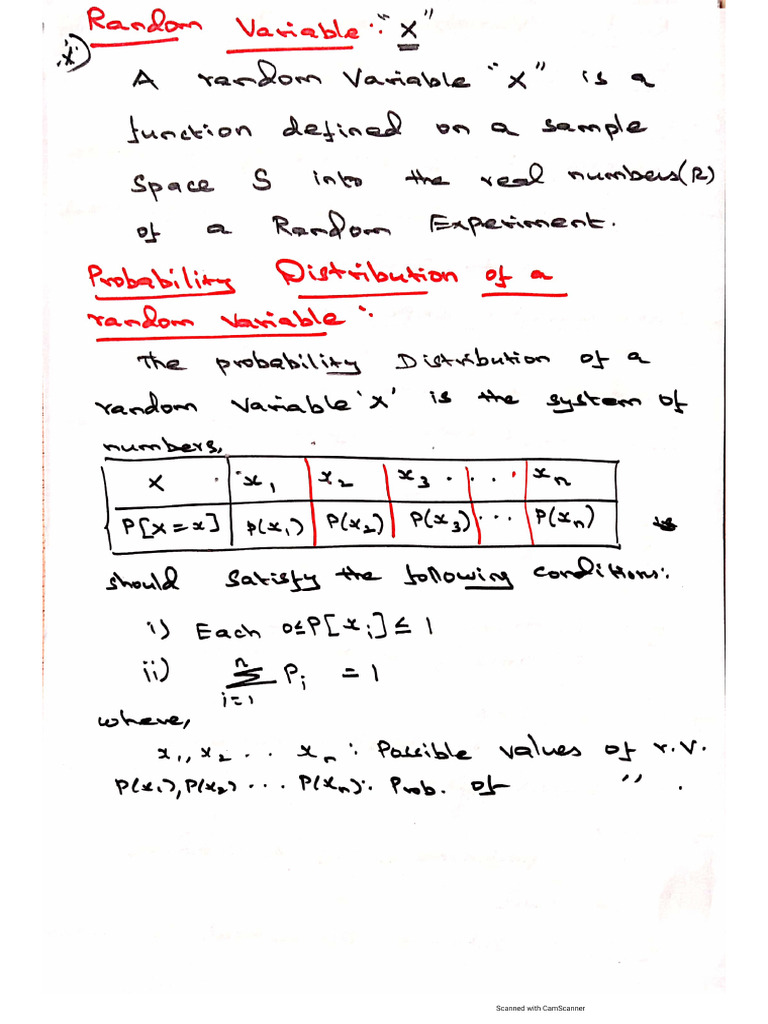 Random Variable :- "X"
*)
A random Variable "X" is a
function defined on a sample
Space S into the real numbers(R)
of a Random Experiment.
Probability Distribution of a
random variable :
The probability Distribution of a
random variable 'X' is the system of
numbers,
X x₁ x₂ x₃ . . . xₙ
P[X=x] P(x₁) P(x₂) P(x₃) ... P(xₙ)
should satisfy the following conditions:
i) Each 0≤P[xᵢ]≤1
ii) n∑i=1 Pᵢ = 1
where,
x₁, x₂ .. xₙ : Possible values of r.v.
P(x₁), P(x₂) ... P(xₙ): Prob. of " .
Scanned with CamScanner